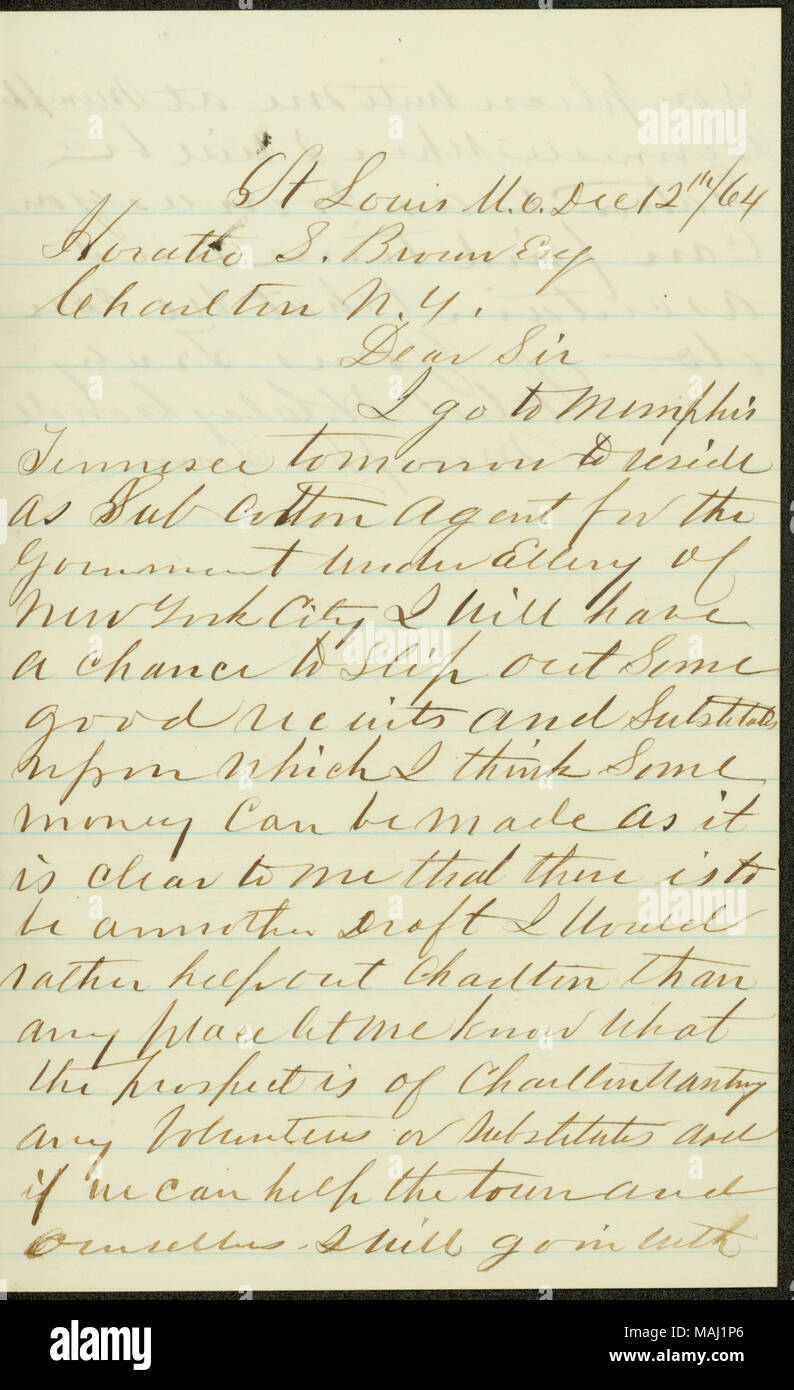 St Louis M.o. Dec 12th/64
Horatio S. Brown Esq
Charlton N.Y.
Dear Sir
I go to Memphis
Tennesee tomorrow to reside
as Sub Cotton Agent for the
Government under Ellery of
New York City I will have
a chance to slip out some
good recuits and Substitutes
upon which I think some
money can be made as it
is clear to me that there is to
be annother Draft I would
rather help out Charlton than
any place let me know what
the prospect is of Charlton wanting
any Volunteers or substitutes and
if we can help the town and
ourselves I will go in with
alamy
Image ID: MAJ1P6
www.alamy.com